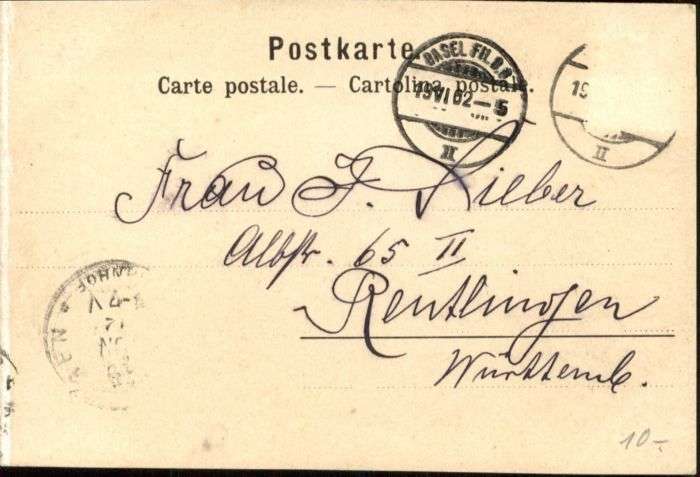 Postkarte.
Carte postale. — Cartolina postale.
BASEL FIL.
19 VI 02 – 5
II
19
II
Frau J. Lieber
Albstr. 65 II
Reutlingen
Württemb.
10.-